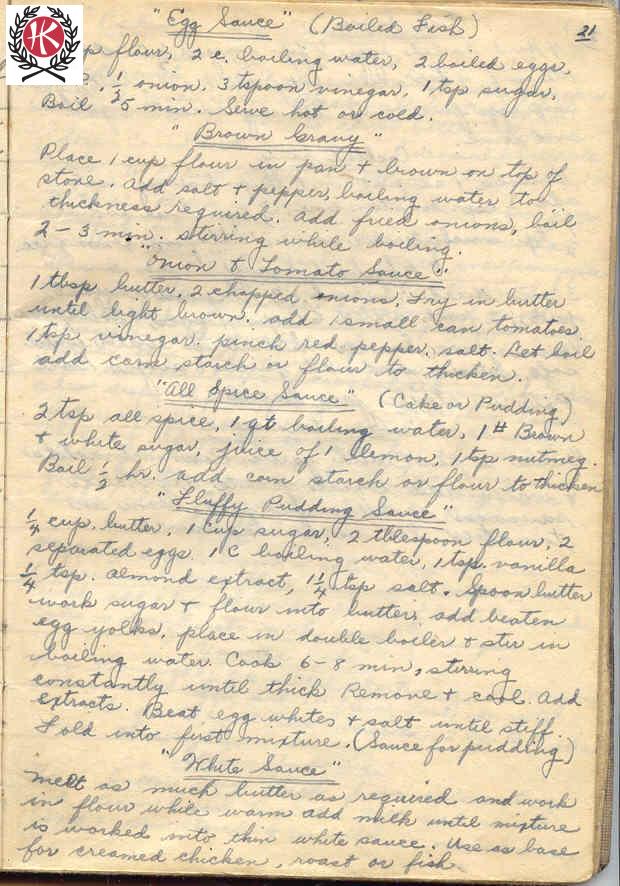 "Egg Sauce" (Boiled Fish) 21
flour, 2 c. boiling water, 2 boiled eggs,
1/2 onion. 3 tspoon vinegar, 1 tsp sugar,
Boil 5 min. Serve hot or cold.
"Brown Gravy"
Place 1 cup flour in pan + brown on top of
stove. Add salt + pepper, boiling water to
thickness required. Add fried onions, boil
2-3 min. stirring while boiling.
"Onion & Tomato Sauce"
1 tbsp butter, 2 chopped onions. Fry in butter
until light brown. add 1 small can tomatoes
1 tsp vinegar. pinch red pepper. salt. Let boil
add corn starch or flour to thicken.
"All Spice Sauce" (Cake or Pudding)
2 tsp all spice, 1 qt boiling water, 1# Brown
+ white sugar, juice of 1 lemon, 1 tsp nutmeg.
Boil 1/2 hr. add corn starch or flour to thicken
"Fluffy Pudding Sauce"
1/4 cup. butter. 1 Cup sugar, 2 tblespoon flour, 2
separated eggs. 1 C boiling water, 1 tsp. vanilla
1/4 tsp. almond extract, 1 1/4 tsp salt. Spoon butter
work sugar + flour into butter, add beaten
egg yolks. place in double boiler + stir in
boiling water. Cook 6-8 min, stirring
constantly until thick Remove + cool. Add
extracts. Beat egg whites + salt until stiff.
Fold into first mixture. (Sauce for pudding)
"White Sauce"
Melt as much butter as required and work
in flour while warm add milk until mixture
is worked into thin white sauce. Use as base
for creamed chicken, roast or fish.